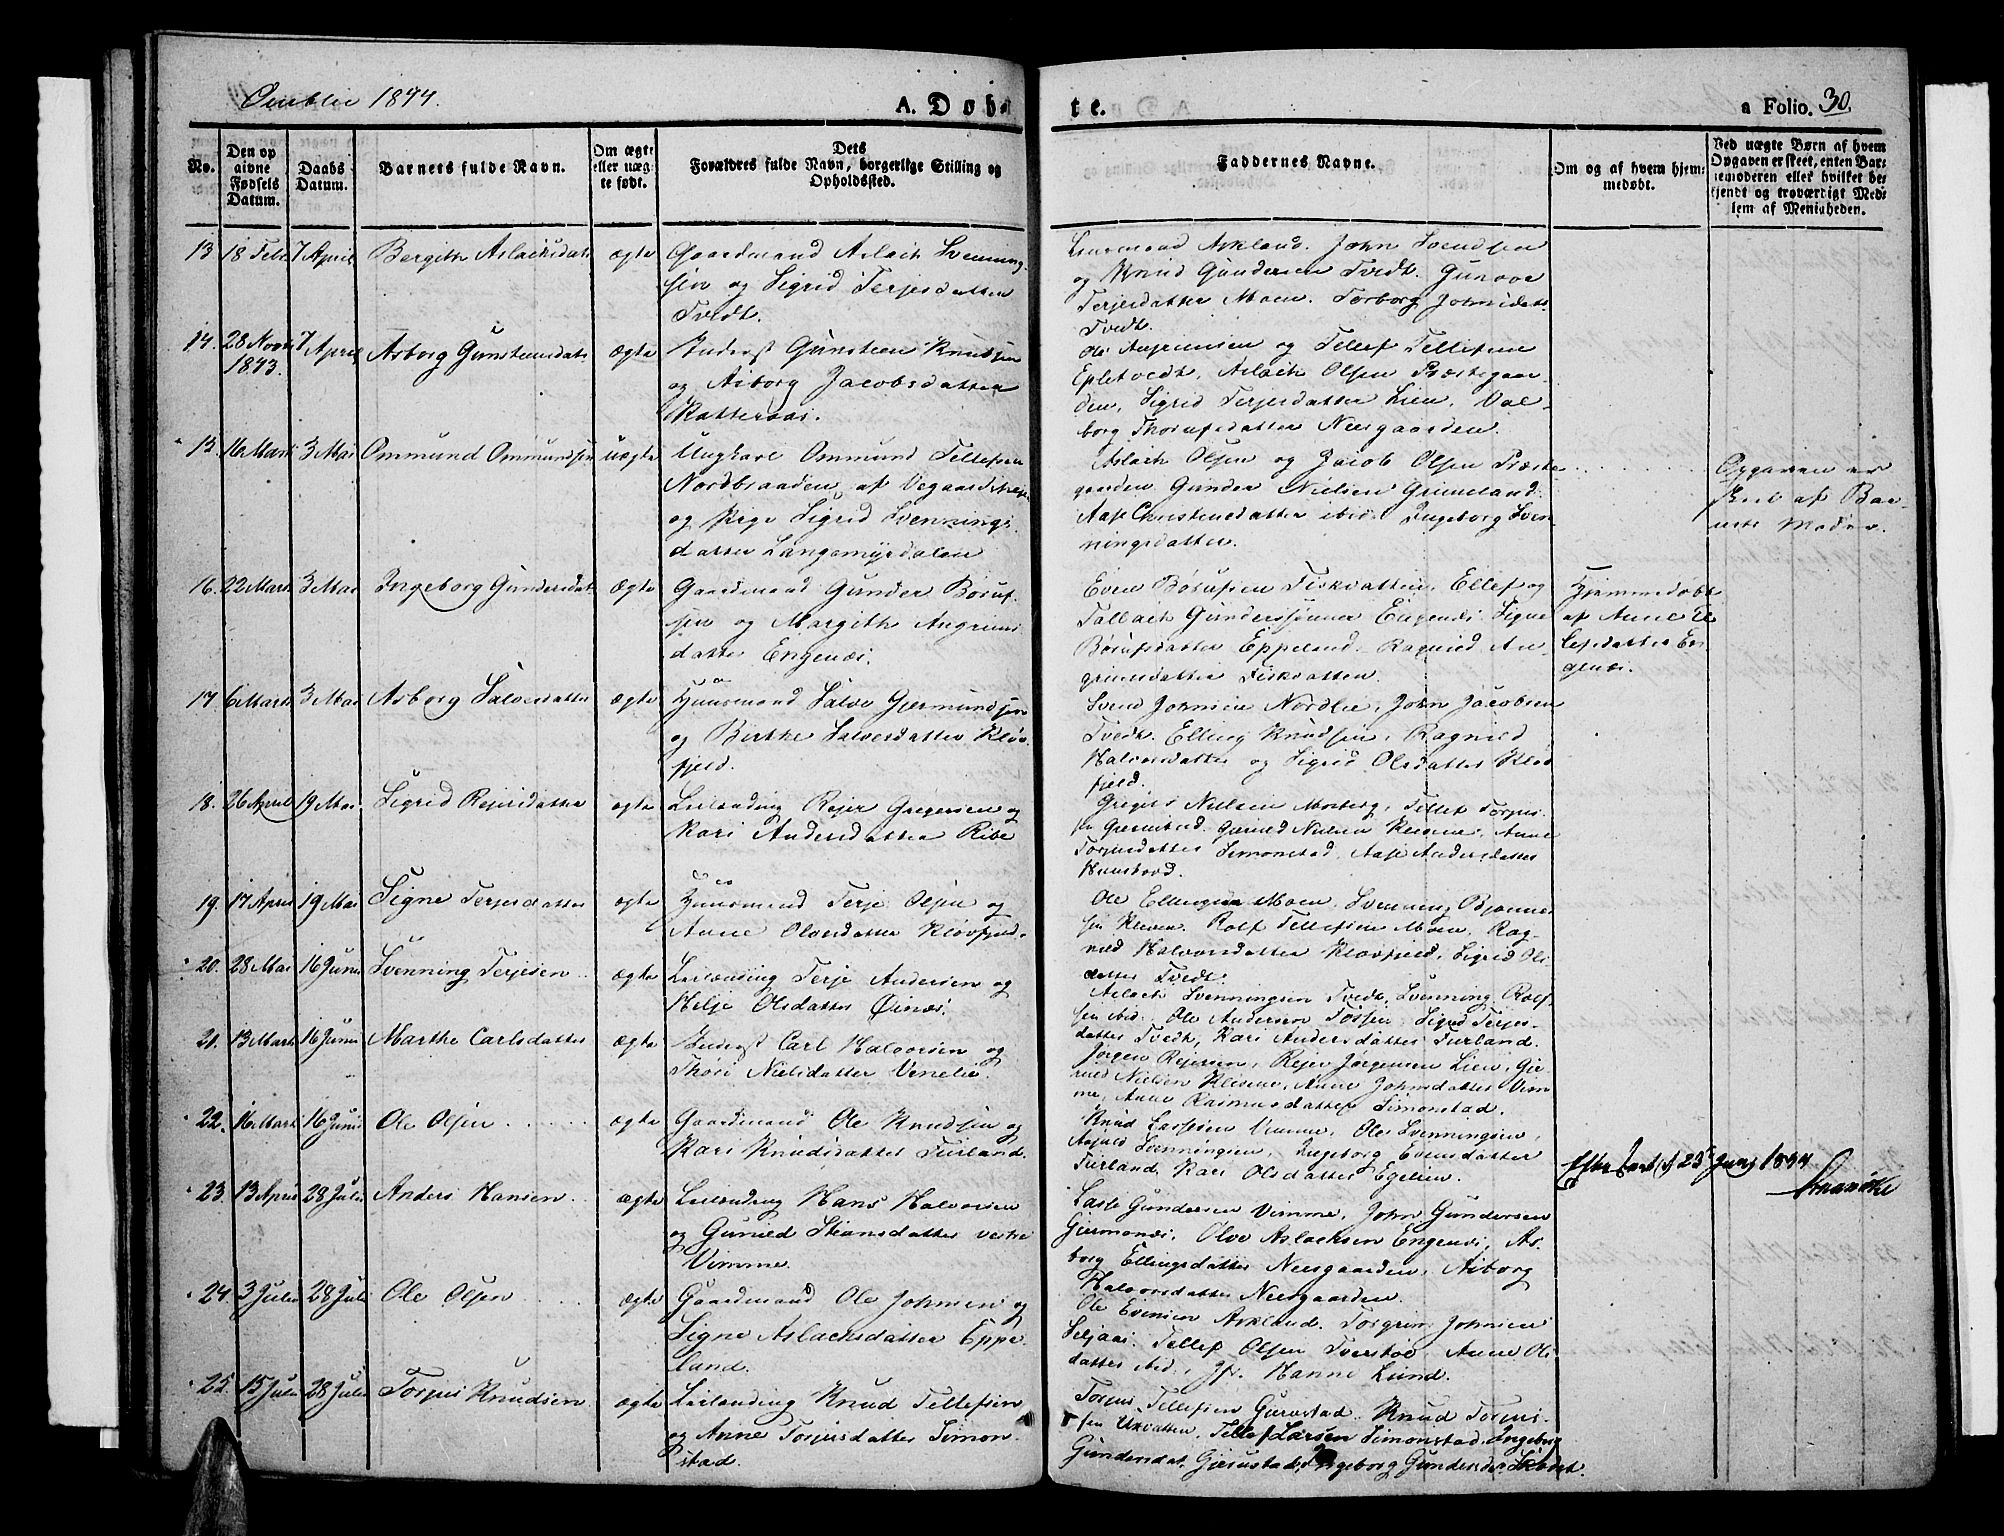 Omblie 1844.
A. Døbte.
a Folio. 30.
No.
Den opgivne Fødsels Datum.
Daabs Datum.
Barnets fulde Navn.
Om ægte eller uægte født.
Dets Forældres fulde Navn, borgerlige Stilling og Opholdssted.
Faddernes Navne.
Om og af hvem hjemmedøbt.
Ved uægte Børn af hvem Opgaven er skeet, enten Barnemoderen eller hvilket bekjendt og troværdigt Medlem af Menigheden.
13 18 Febr 7 April Bergith Aslachsdatt ægte Gaardmand Aslach Svenning-
sen og Sigrid Terjesdatter
Tvedt.
Askland. John Svendsen
og Knud Gundersen Tvedt. Gunove
Terjesdatter Moen. Torborg Johnsdatt
Tvedt.
14. 28 Novr 1843. 7 April Asborg Gunsteensdatt ægte Inderst Gunsteen Knudsen
og Asborg Jacobsdatter
Katteraas.
Ole Angrimsen og Tellef Tellefsen
Epletvedt, Aslach Olsen Præstegaar-
den, Sigrid Terjesdatter Lien, Val-
borg Thorufsdatter Neergaarden.
15. 16 Marti 3 Mai Ommund Ommundsen uægte Ungkarl Ommund Tellefsen
Nordbraaden af Vegaardsheien
og Pige Sigrid Svennings-
datter Langemyrdalen
Aslach Olsen og Jacob Olsen Præste-
gaarden Gunder Nielsen Grimeland.
Aase Christensdatter ibid. Ingeborg Sven-
ningsdatter.
Opgaven er
skeet af Bar-
nets Moder.
16. 22 Marti 3 Mai Ingeborg Gundersdatt ægte Gaardmand Gunder Børuf-
sen og Margith Angrims-
datter Engenæs.
Even Børufsen Fiskvatten, Ellef og
Tallach Gunderssønner Engenæs. Signe
Børufsdatter Eppeland. Ragnild An-
grimsdatter Fiskvatten.
Hjemmedøbt
af Anne El-
lefsdatter En-
genæs.
17 6 Marti 3 Mai Asborg Salvesdatter ægte Huusmand Salve Gjermundsen
og Birthe Salvesdatter Kløv-
fjeld.
Svend Johnsen Nordlie, John Jacobsen
Tvedt. Elling Knudsen, Ragnild
Halvorsdatter og Sigrid Olsdatter Kløv-
fjeld.
18. 26 April 19 Mai Sigrid Rejersdatter ægte Leilænding Rejer Gregersen og
Kari Andersdatter Ribe
Gregers Nielsen Mosberg, Tellef Torjus-
sen Gjerustad. Gjerued Nielsen Klevene, Anne
Torjusdatter Simonstad, Aase Andersdatter
19. 17 April 19 Mai Signe Terjesdatter ægte Huusmand Terje Olsen og
Anne Olavsdatter Kløvfjeld.
Ole Ellingsen Moen. Svenning Bjønnes-
sen Kleven. Rolf Tellefsen Moen, Rag-
nild Halvorsdatter Kløvfjeld, Sigrid Ols-
datter Tvedt.
20. 28 Mai 16 Juni Svenning Terjesen ægte Leilænding Terje Andersen og
Helje Olsdatter Øinæs.
Aslach Svenningsen Tvedt, Svenning Rolf-
sen ibid. Ole Andersen Fosse, Sigrid Terjes-
datter Tvedt, Kari Andersdatter Furland.
21. 13 Marti 16 Juni Marthe Carlsdatter ægte Inderst Carl Halvorsen og
Thore Nielsdatter Venelie.
Jørgen Rejersen, Rejer Jørgensen Lien, Gje-
rued Nielsen Klevene, Anne Johnsdatter Vim-
me, Anne Rasmusdatter Simonstad.
22. 16 Marti 16 Juni Ole Olsen ægte Gaardmand Ole Knudsen og
Kari Knudsdatter Furland.
Knud Lassesen Vimme, Ole Svenningsen,
Svenningsen, Ingeborg Evensdatter
Furland, Kari Olsdatter Egelien.
Efterseet d 23 Juni 1844
23. 13 April 28 Juli Anders Hansen ægte Leilænding Hans Halvorsen
og Gunild Stiansdatter vestre
Vimme.
Lasse Gundersen Vimme, John Gundersen
Gjermonæs, Olve Aslachsen Engenæs, As-
borg Ellingsdatter Neergaarden, Asborg
Halvorsdatter Neergaarden.
24. 3 Juli 28 Juli Ole Olsen ægte Gaardmand Ole Johnsen og
Signe Aslachsdatter Eppe-
land.
Ole Evensen Askland. Torgrim Johnsen
Seljaas. Tellef Olsen Tverstøe, Anne Ols-
datter ibid., Jfr. Hanne Lund.
25. 15 Juli 28 Juli Torjus Knudsen ægte Leilænding Knud Tellefsen
og Anne Torjusdatter Simon-
stad.
Torjus Tellefsen Gjerustad. Knud Torjus-
sen Uxvatten, Tellef Larsen Simonstad, Ingeborg
Gundersdat. Gjerustad, Ingeborg Gundersdat.